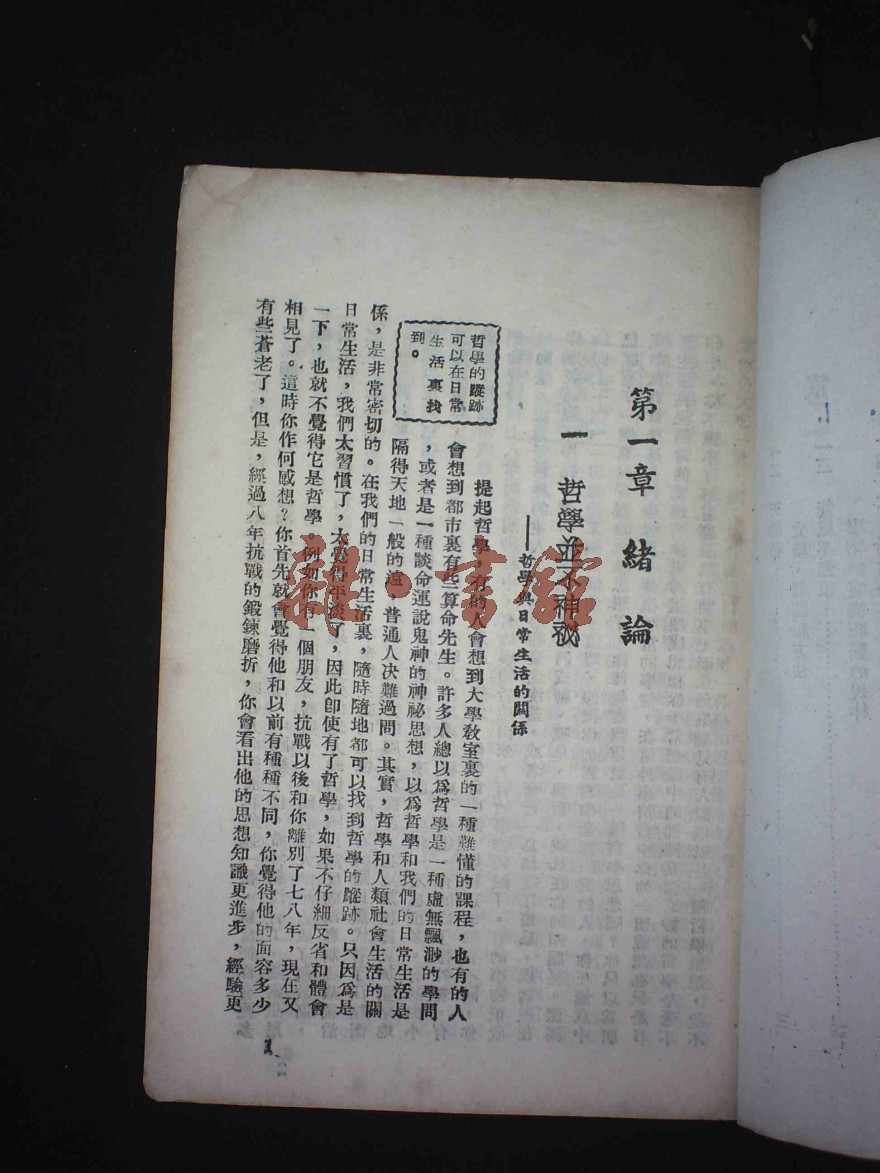 第一章 緒論
一 哲學並不神祕
——哲學與日常生活的關係
哲學的蹤跡
可以在日常
生活裏找
到。
提起哲學，有的人會想到大學教室裏的一種難懂的課程，也有的人
會想到都市裏有些算命先生。許多人總以爲哲學是一種虛無飄渺的學問
，或者是一種談命運說鬼神的神祕思想，以爲哲學和我們的日常生活是
隔得天地一般的遠，普通人决難過問。其實，哲學和人類社會生活的關
係，是非常密切的。在我們的日常生活裏，隨時隨地都可以找到哲學的蹤跡。只因爲是
日常生活，我們太習慣了，太覺得平淡了，因此卽使有了哲學，如果不仔細反省和體會
一下，也就不覺得它是哲學。例如你有一個朋友，抗戰以後和你離別了七八年，現在又
相見了。這時你作何感想？你首先就會覺得他和以前有種種不同，你覺得他的面容多少
有些蒼老了，但是，經過八年抗戰的鍛鍊磨折，你會看出他的思想知識更進步，經驗更
1
龍·書館